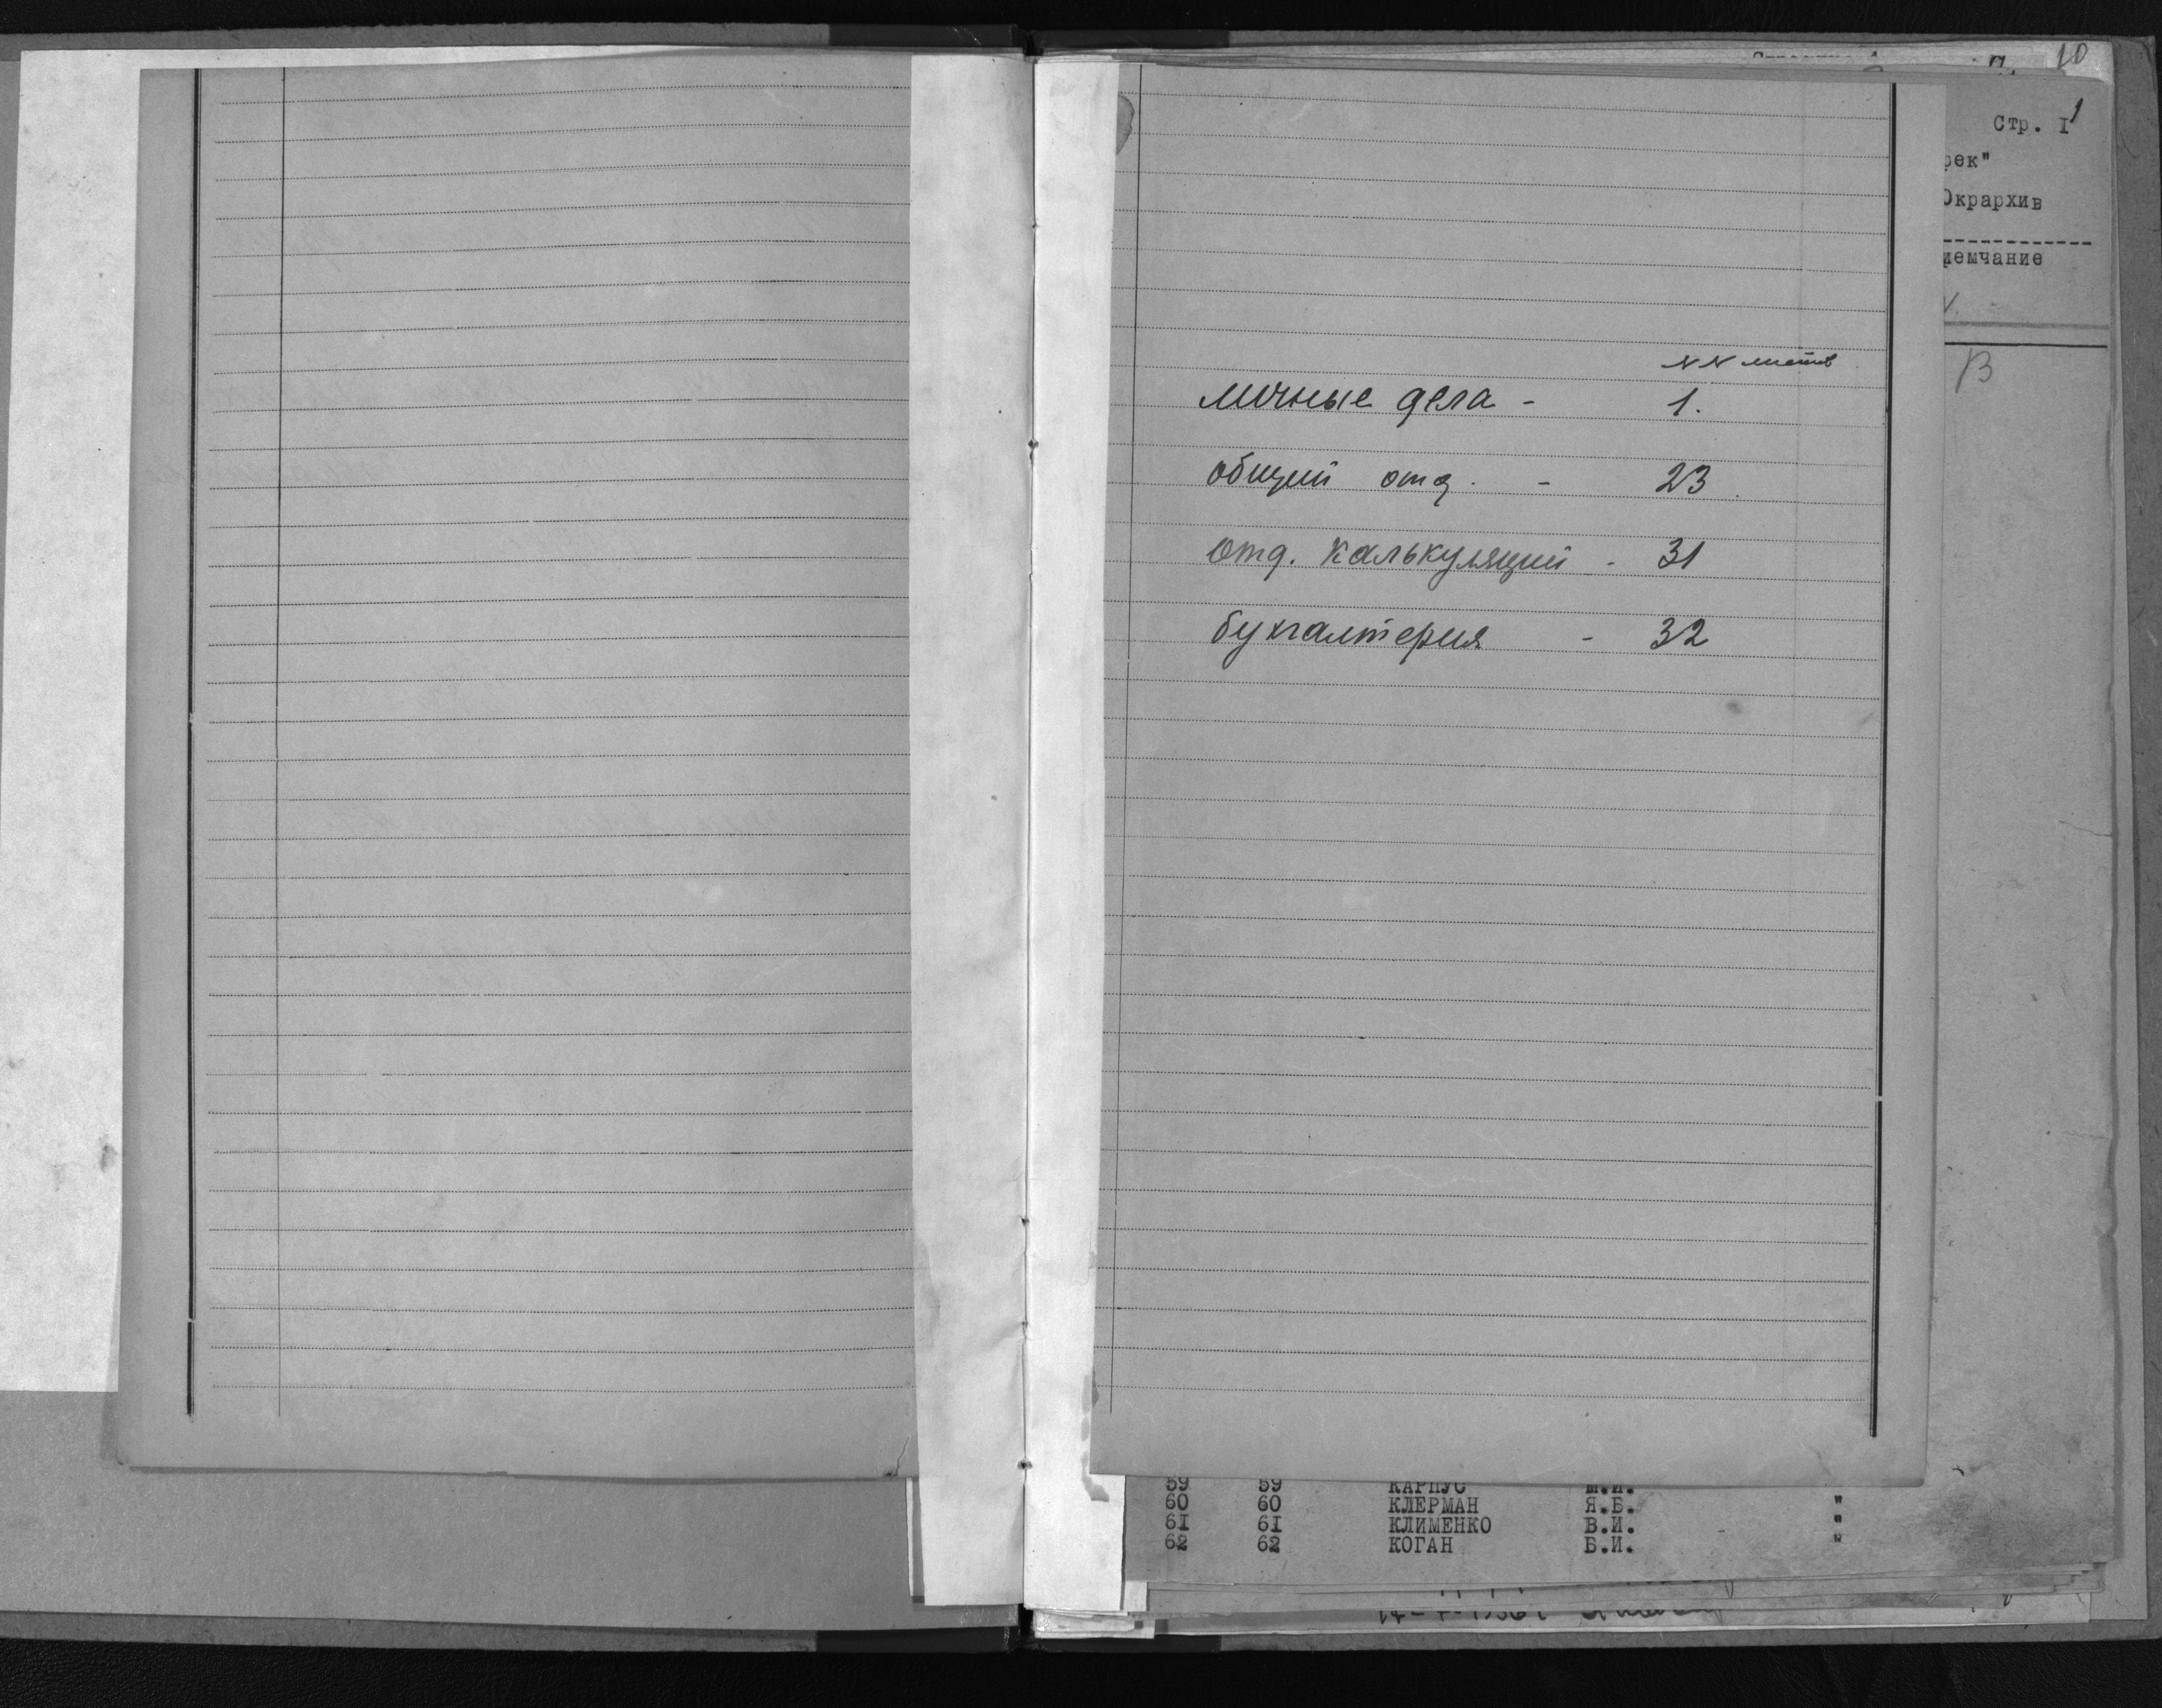 10
Стр. I
1
рек"
Окрархив
иемчание
В
NN листов
личные дела - 1.
общий отд. - 23
отд. калькуляций - 31
бухгалтерия - 32
59 59 КАРПУС М.И.
60 60 КЛЕРМАН Я.Б. "
61 61 КЛИМЕНКО В.И. "
62 62 КОГАН Б.И. "